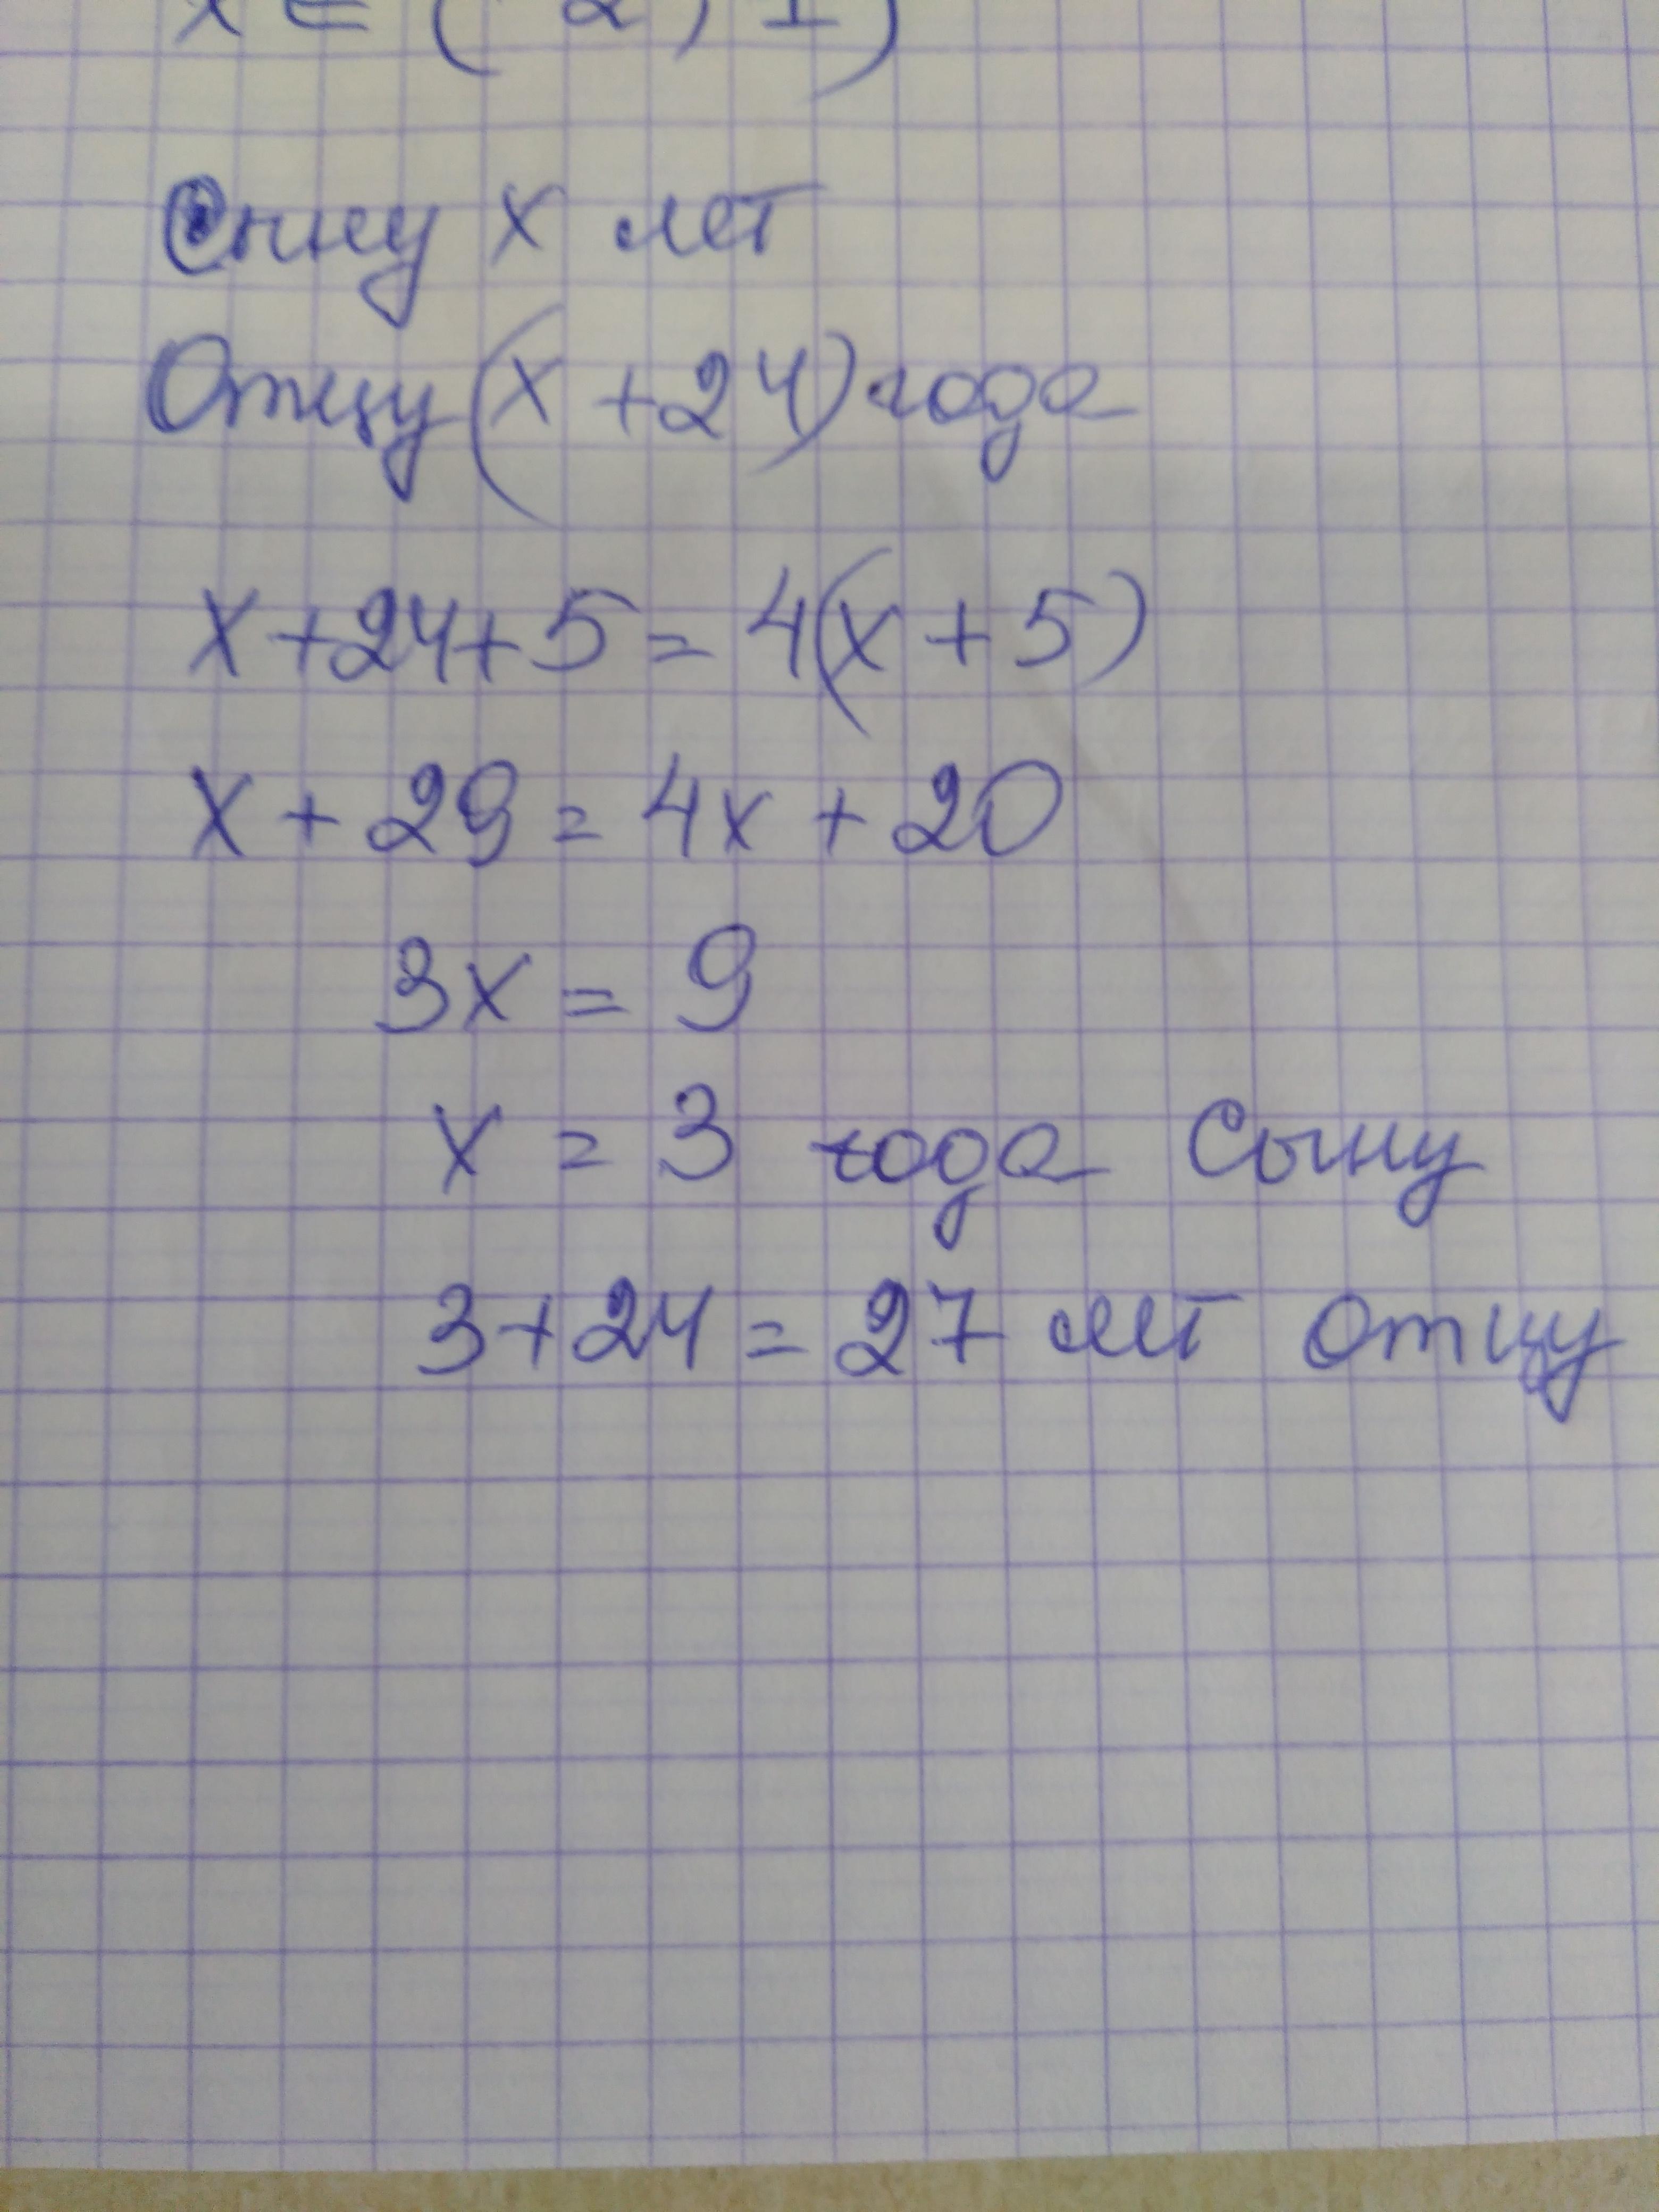 Сыну x лет
Отцу (x + 24) года
x + 24 + 5 = 4(x + 5)
x + 29 = 4x + 20
3x = 9
x = 3 года Сыну
3 + 24 = 27 лет отцу